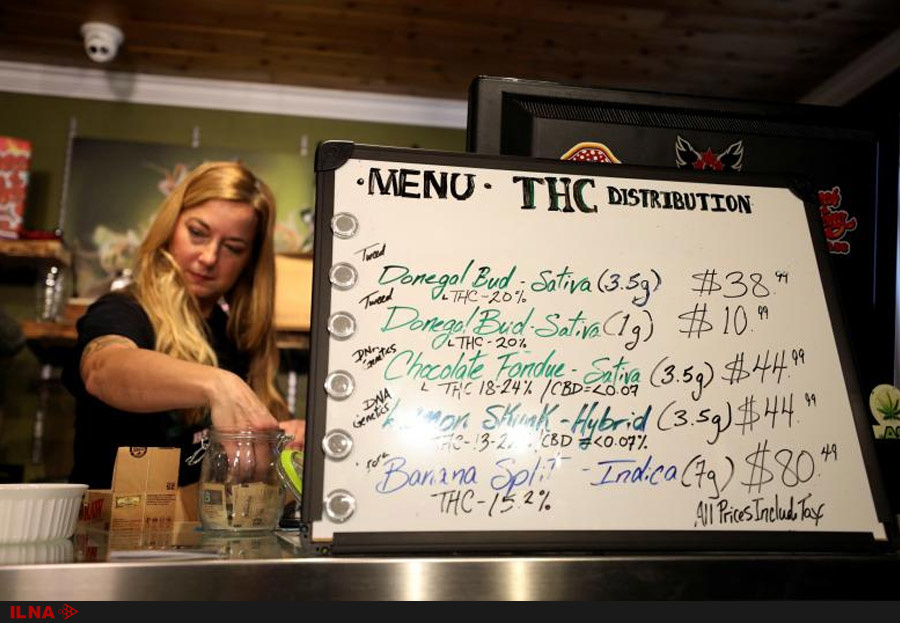 ·MENU· THC DISTRIBUTION
Tweed
Donegal Bud - Sativa (3.5g) $38.99
THC-20%
Tweed
Donegal Bud - Sativa (1g) $10.99
THC-20%
DNA genetics
Chocolate Fondue - Sativa (3.5g) $44.99
THC 18-24% / CBD=<0.07
DNA Genetics
Lemon Skunk - Hybrid (3.5g) $44.99
/CBD =<0.07%
Banana Split - Indica (7g) $80.49
THC-15.2%
All Prices Include Tax
ILNA